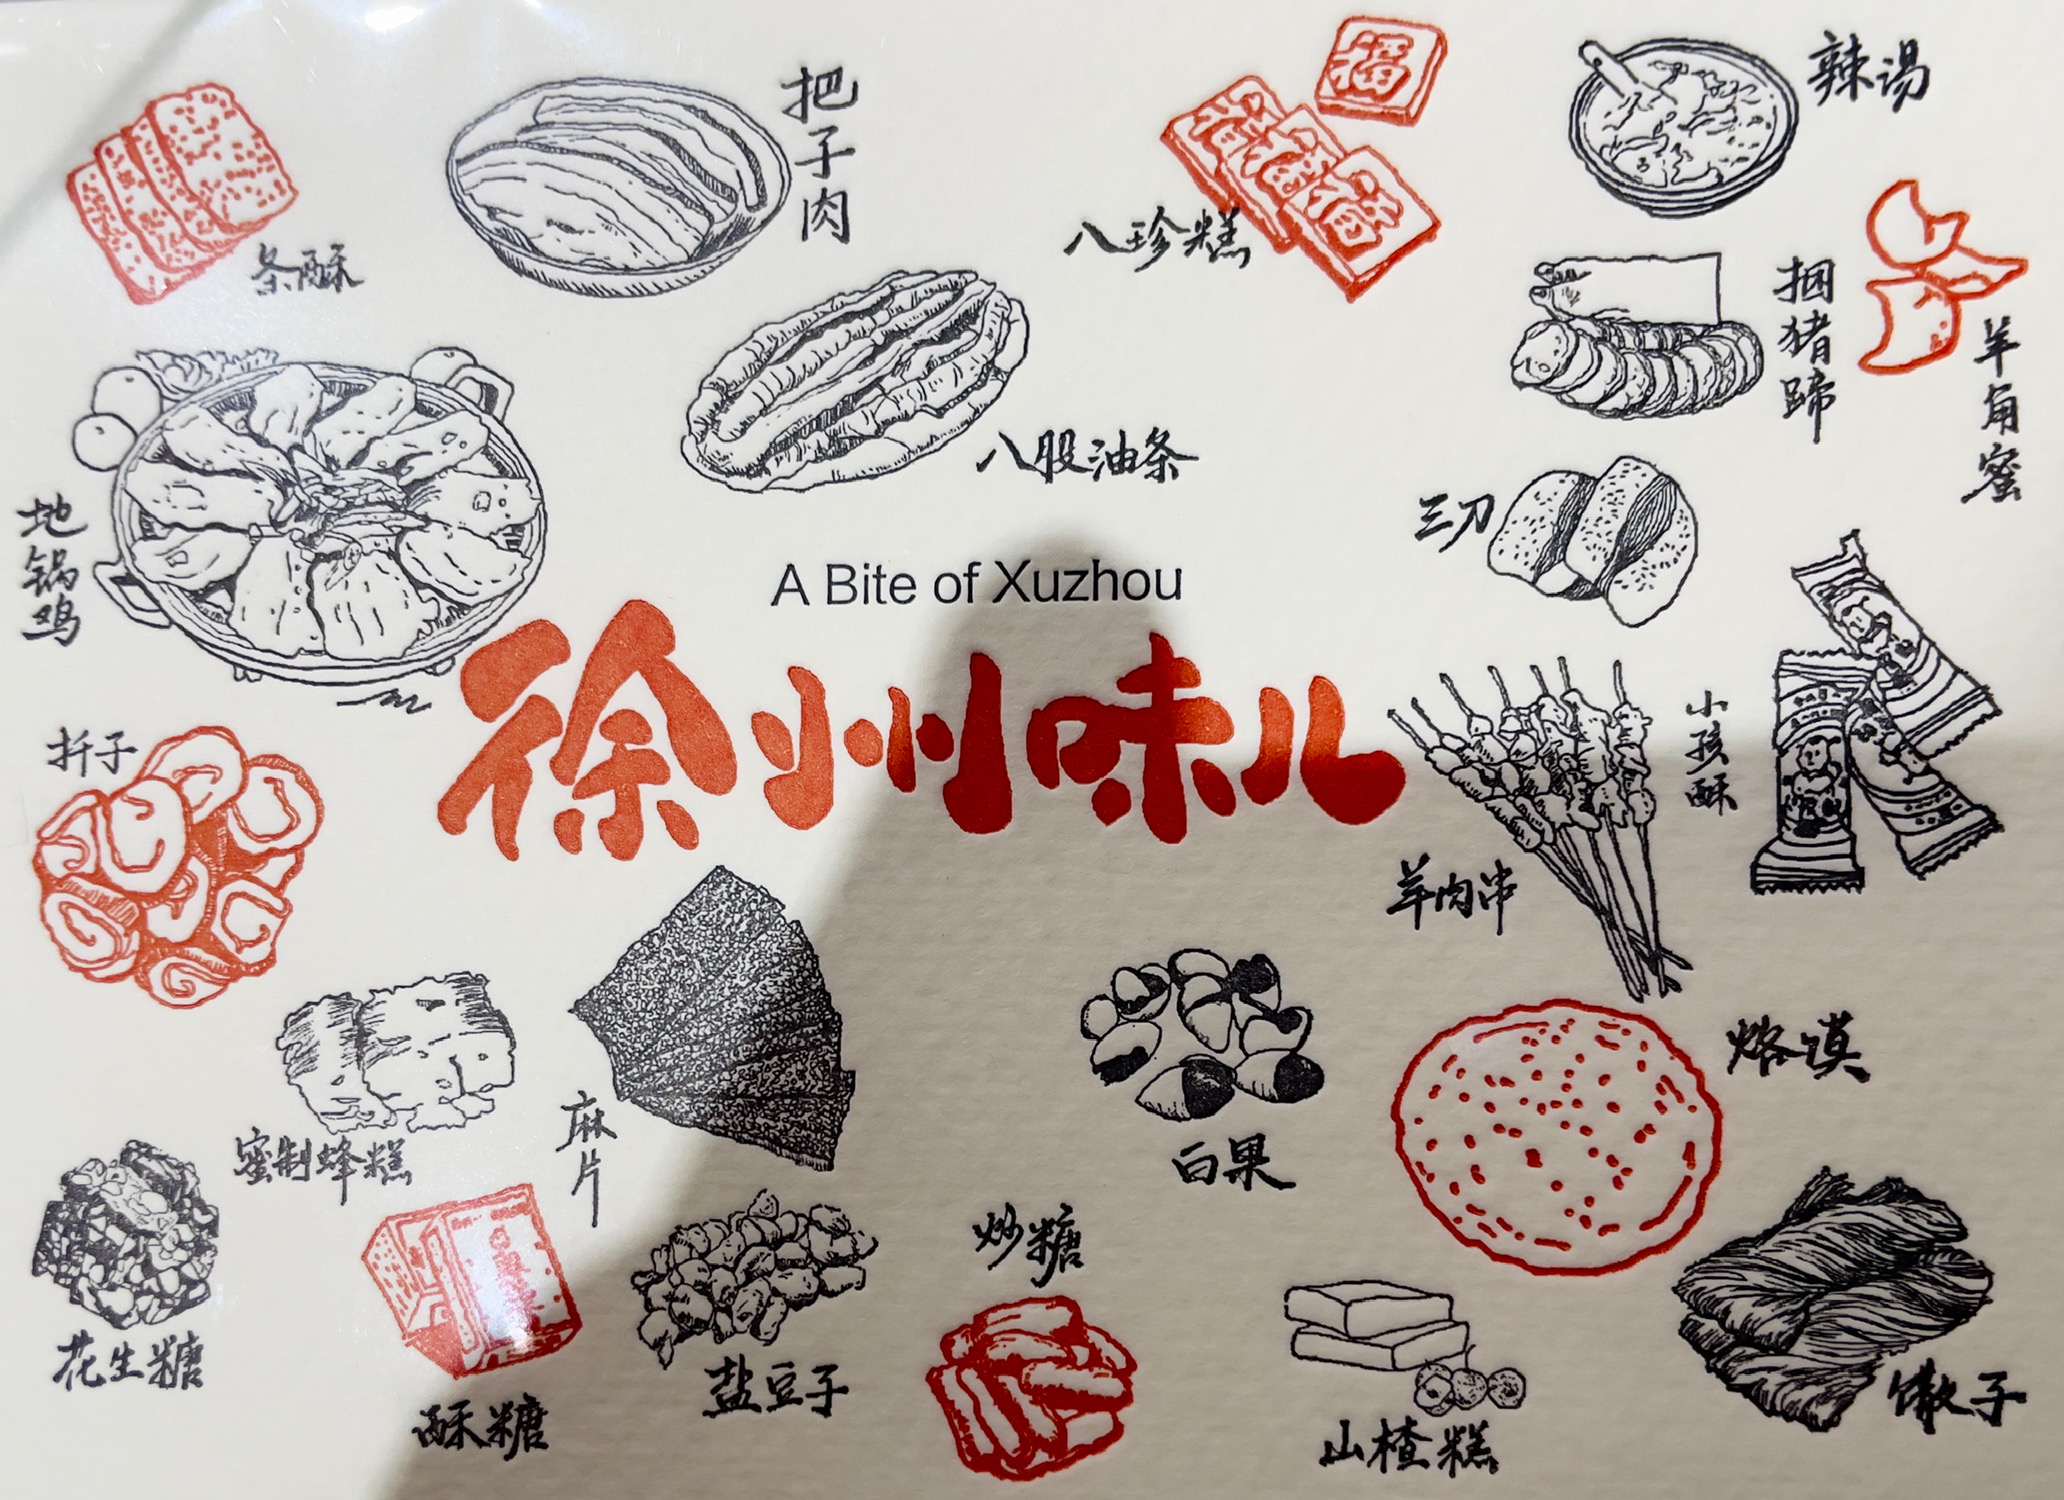 条酥
把子肉
八珍糕
福
辣汤
捆猪蹄
羊角蜜
八股油条
地锅鸡
三刀
A Bite of Xuzhou
徐州味儿
小孩酥
羊肉串
折子
蜜制蜂糕
麻片
白果
烙馍
花生糖
酥糖
盐豆子
炒糖
山楂糕
馓子